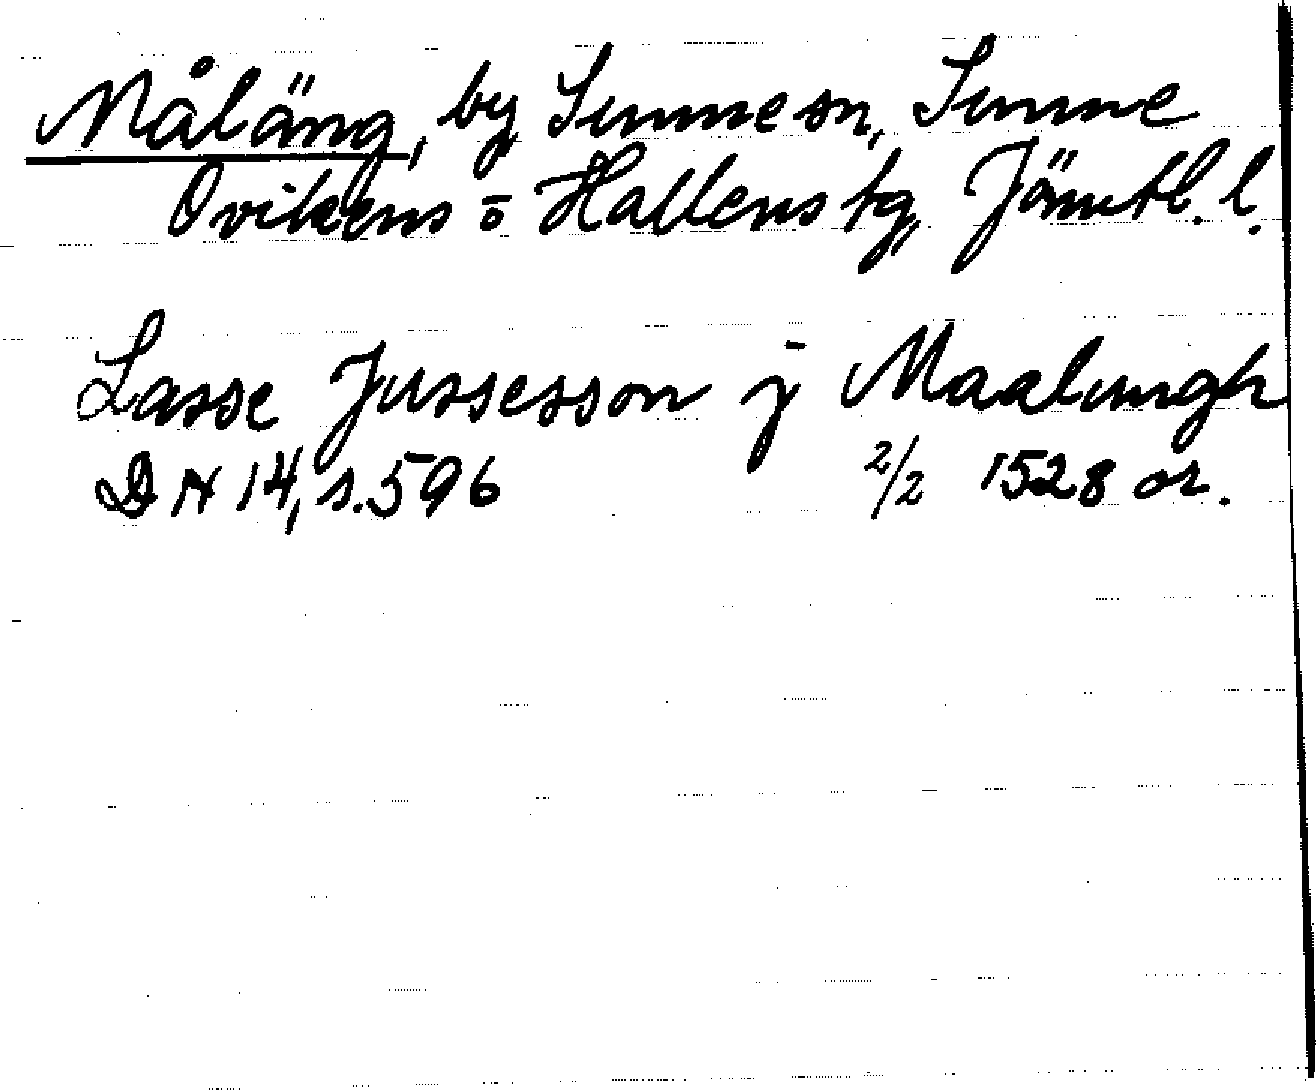 Måläng, by Sunne sn, Sunne
Ovikens o Hallens tg, Jämtl. l.
Lasse Jussesson j Maalungh
DN 14, s. 596 2/2 1528 or.